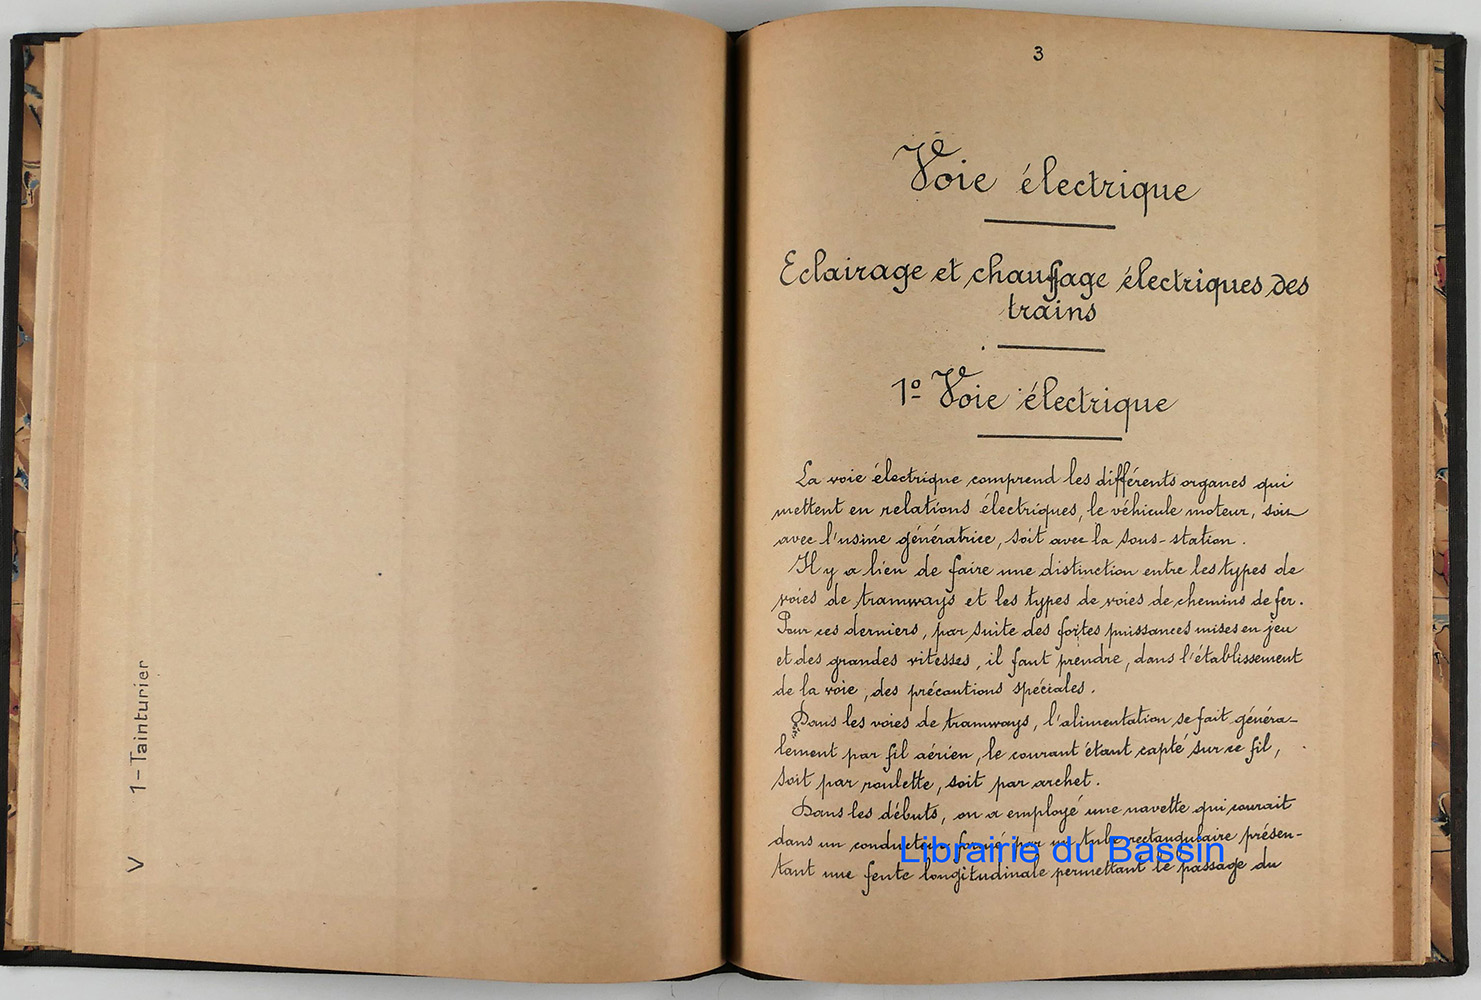 V 1-Tainturier
3
Voie électrique
Eclairage et chauffage électriques des
trains
1º Voie électrique
La voie électrique comprend les différents organes qui
mettent en relations électriques, le véhicule moteur, soit
avec l'usine génératrice, soit avec la sous-station.
Il y a lieu de faire une distinction entre les types de
voies de tramways et les types de voies de chemins de fer.
Pour ces derniers, par suite des fortes puissances mises en jeu
et des grandes vitesses, il faut prendre, dans l'établissement
de la voie, des précautions spéciales.
Dans les voies de tramways, l'alimentation se fait généra-
lement par fil aérien, le courant étant capté sur ce fil,
soit par roulette, soit par archet.
Dans les débuts, on a employé une navette qui courait
dans un conducteur formé par un tube rectangulaire présen-
tant une fente longitudinale permettant le passage du
Librairie du Bassin